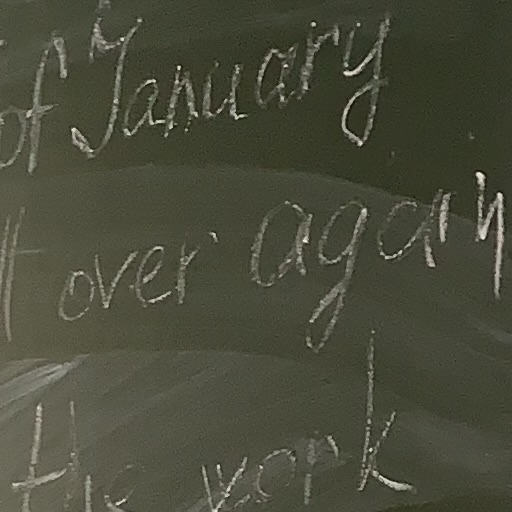 of January
ll over again
the work